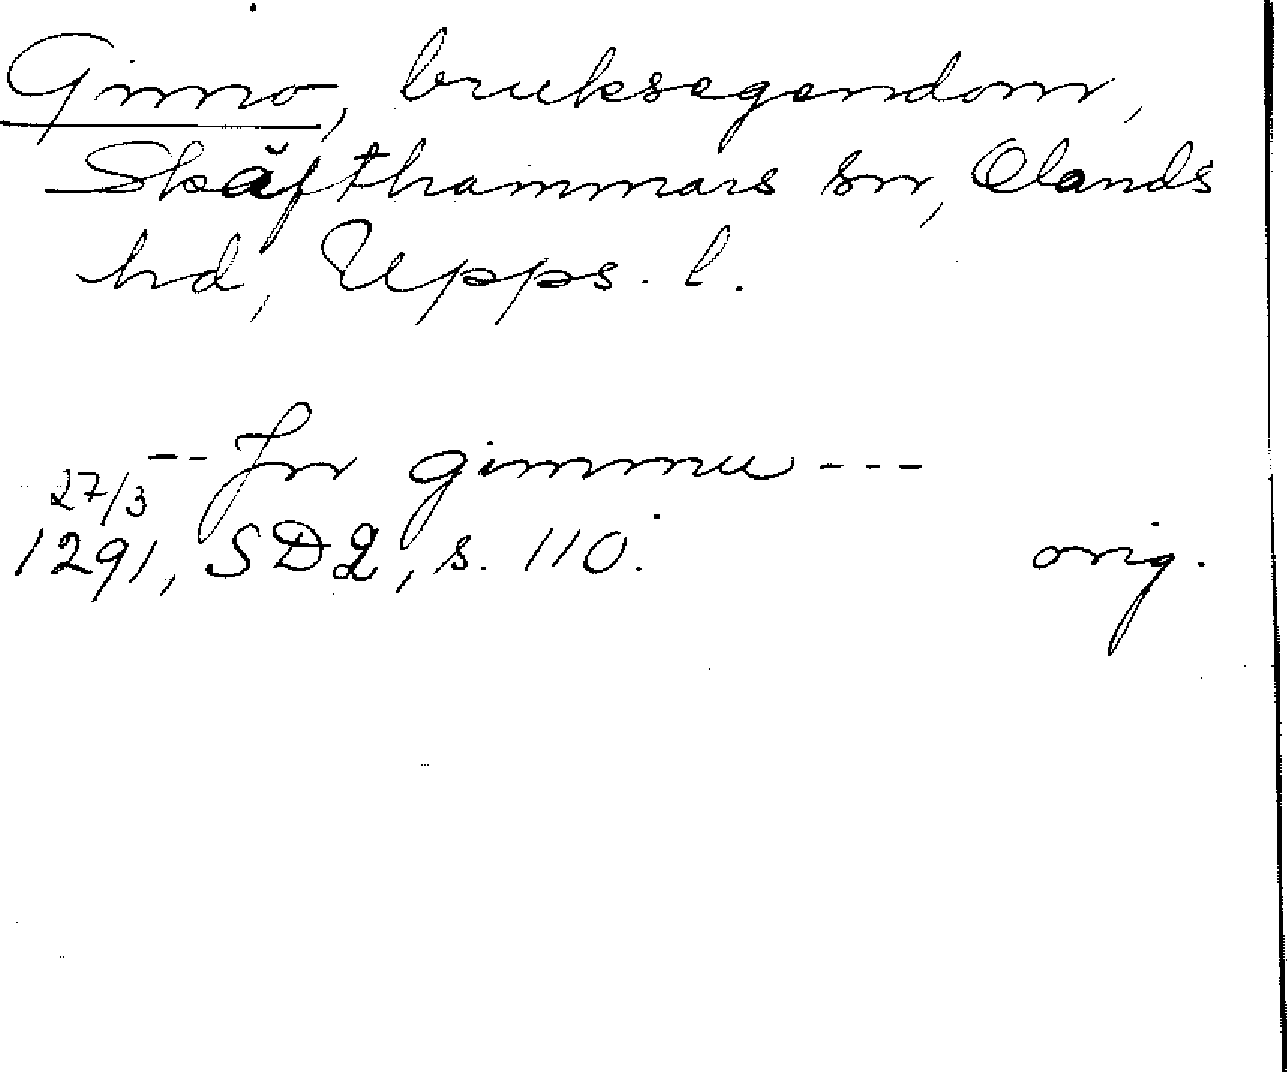 Gimo, bruksegendom,
Skäfthammars sn, Olands
hd, Upps. l.
-- Jn gimmu ---
27/3
1291, SD2, s. 110.
orig.